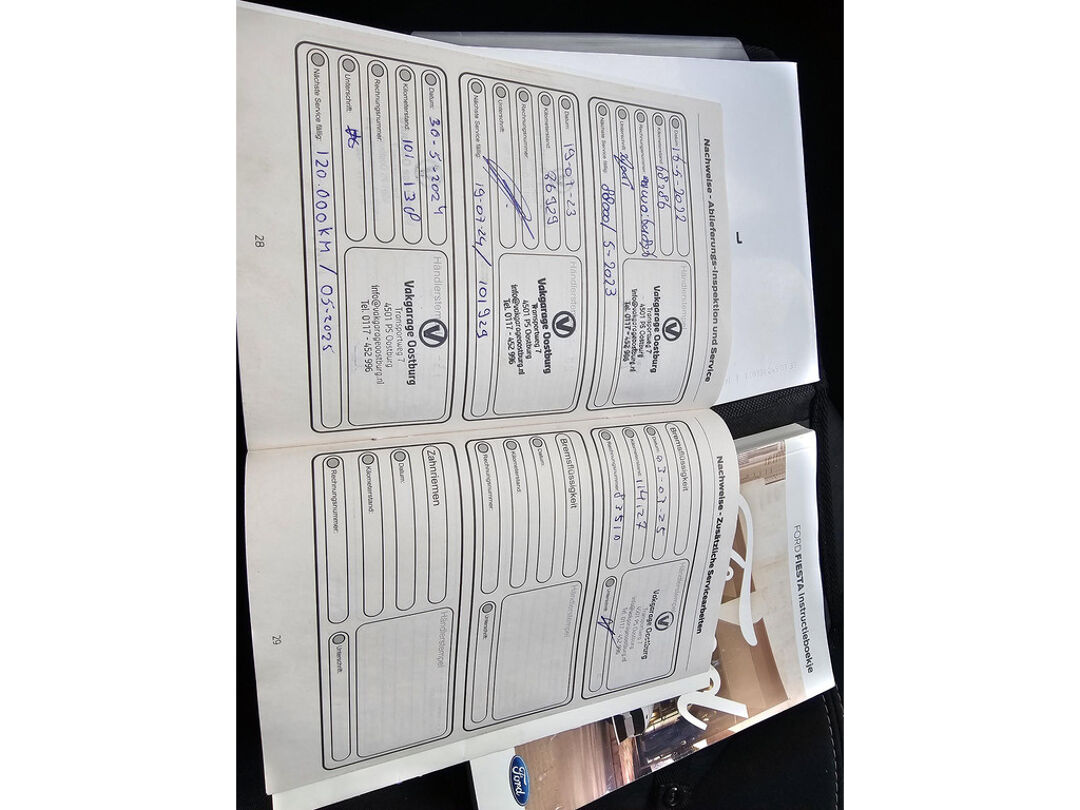 Nachweise - Ablieferungs-Inspektion und Service
Datum: 16-5-2022
Kilometerstand: 68286
Rechnungsnummer:
Unterschrift:
Nächste Service fällig: 88000/ 5-2023
Händlerstempel
Vakgarage Oostburg
Transportweg 7
4501 PS Oostburg
info@vakgarageoostburg.nl
Tel. 0117 - 452 996
Datum: 19-07-23
Kilometerstand: 86929
Rechnungsnummer:
Unterschrift:
Nächste Service fällig: 19-07-24/ 101929
Händlerstempel
Vakgarage Oostburg
Transportweg 7
4501 PS Oostburg
info@vakgarageoostburg.nl
Tel. 0117 - 452 996
Datum: 30-5-2024
Kilometerstand: 101 130
Rechnungsnummer:
Unterschrift:
Nächste Service fällig: 120.000KM / 05-2025
Händlerstempel
Vakgarage Oostburg
Transportweg 7
4501 PS Oostburg
info@vakgarageoostburg.nl
Tel. 0117 - 452 996
28
Nachweise - Zusätzliche Servicearbeiten
Bremsflüssigkeit
Datum: 03-07-25
Kilometerstand:
Rechnungsnummer:
Händlerstempel
Vakgarage Oostburg
Transportweg 7
4501 PS Oostburg
info@vakgarageoostburg.nl
Tel. 0117 - 452 996
Unterschrift:
Bremsflüssigkeit
Datum:
Kilometerstand:
Rechnungsnummer:
Händlerstempel
Unterschrift:
Zahnriemen
Datum:
Kilometerstand:
Rechnungsnummer:
Händlerstempel
Unterschrift:
29
FORD FIESTA Instructieboekje
Ford